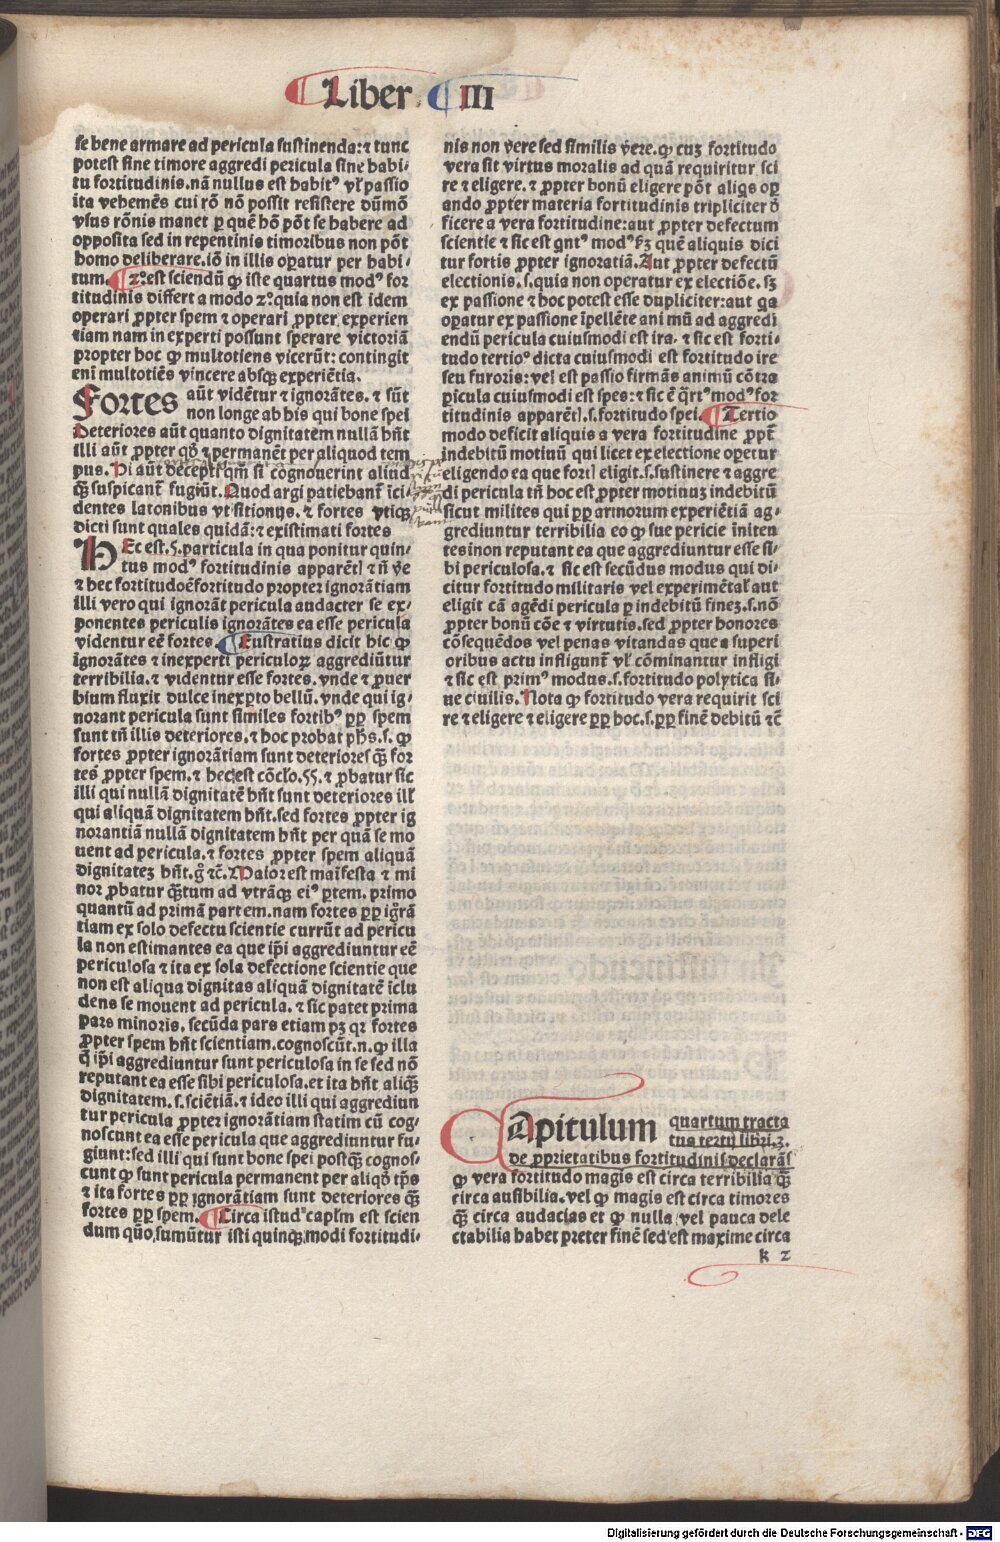 Liber III
se bene armare ad pericula sustinenda: ⁊ tunc
potest sine timore aggredi pericula sine habi⸗
tu fortitudinis. nā nullus est habitꝰ vl̓ passio
ita vehemēs cui rō nō possit resistere dūmō
vsus rōnis manet ꝑ quē hō pōt se habere ad
opposita sed in repentinis timoribus non pōt
homo deliberare. iō in illis oꝑatur per habi⸗
tum. 2ꝰ est sciendū ꝙ iste quartus modꝰ for
titudinis differt a modo 2ꝰ quia non est idem
operari ꝓpter spem ⁊ operari ꝓpter experien
tiam nam in experti possunt sperare victoriā
propter hoc ꝙ multotiens vicerūt: contingit
enī multotiēs vincere absqꝫ experiētia.
Fortes aūt vidētur ⁊ ignorātes. ⁊ sūt
non longe ab his qui bone spei
Deteriores aūt quanto dignitatem nullā hn̄t
illi aūt ꝓpter qd̓ ⁊ permanēt per aliquod tem
pus. Hi aūt decepti qm̄ si cognouerint aliud
ꝙ̄ suspicant̄ fugiūt. Quod argi patiebant̄ īci
dentes latonibus vt sitionꝰ. ⁊ fortes vtiqꝫ
dicti sunt quales quidā: ⁊ existimati fortes
HEc est .5. particula in qua ponitur quin⸗
tus modꝰ fortitudinis apparēt̄ ⁊ n̄ v̄e
⁊ hec fortitudo ē fortitudo propter ignorātiam
illi vero qui ignorāt pericula audacter se ex⸗
ponentes periculis ignorātes ea esse pericula
videntur eē fortes. Eustratius dicit hic ꝙ
ignorātes ⁊ inexperti periculoꝝ aggrediūtur
terribilia. ⁊ videntur esse fortes. vnde ⁊ ꝓuer
bium fluxit dulce inexꝑto bellū. vnde qui ig⸗
norant pericula sunt similes fortibꝰ ꝓꝑ spem
sunt tn̄ illis deteriores. ⁊ hoc probat ph̄s. s. ꝙ
fortes ꝓpter ignorātiam sunt deteriores ꝙ̄ for
tes ꝓpter spem. ⁊ hec est cōclo. 55. ⁊ ꝓbatur sic
illi qui nullā dignitatē hn̄t sunt deteriores ill̓
qui aliquā dignitatem hn̄t. sed fortes ꝓpter ig
norantiā nullā dignitatem hn̄t per quā se mo
uent ad pericula. ⁊ fortes ꝓpter spem aliquā
dignitatez hn̄t. g̊ ⁊c̄. Maior est maīfesta ⁊ mi
nor ꝓbatur ꝙ̄tum ad vtrāqꝫ eiꝰ ꝑtem. primo
quantū ad primā partem. nam fortes ꝓꝑ ign̄rā
tiam ex solo defectu scientie currūt ad pericu
la non estimantes ea que ip̄i aggrediuntur eē
periculosa ⁊ ita ex sola defectione scientie que
non est aliqua dignitas aliquā dignitatē īclu
dens se mouent ad pericula. ⁊ sic patet prima
pars minoris. secūda pars etiam pꝫ qꝛ fortes
ꝓpter spem hn̄t scientiam. cognoscūt. n. ꝙ illa
q̄ ip̄i aggrediuntur sunt periculosa in se sed nō
reputant ea esse sibi periculosa. et ita hn̄t aliqꝫ̄
dignitatem. s. sciētiā. ⁊ ideo illi qui aggrediun
tur pericula ꝓpter ignorātiam statim cū cog⸗
noscunt ea esse pericula que aggrediuntur fu⸗
giunt: sed illi qui sunt bone spei postꝙ̄ cognos⸗
cunt ꝙ sunt pericula permanent per aliqd̓ tp̄s
⁊ ita fortes ꝓꝑ ignorātiam sunt deteriores ꝙ̄
fortes ꝓꝑ spem. Circa istud caplm̄ est scien
dum quō sumūtur isti quinqꝫ modi fortitudi⸗
nis non vere sed similis vere. ꝙ cuꝫ fortitudo
vera sit virtus moralis ad quā requiritur sci
re ⁊ eligere. ⁊ ꝓpter bonū eligere pōt aliqs oꝑ
ando ꝓpter materia fortitudinis tripliciter d̓
ficere a vera fortitudine: aut ꝓpter defectum
scientie ⁊ sic est qn̄tꝰ modꝰ ẜꝫ quē aliquis dici
tur fortis ꝓpter ignoratiā. Aut ꝓpter defectū
electionis. s. quia non operatur ex electiōe. sꝫ
ex passione ⁊ hoc potest esse dupliciter: aut qa
oꝑatur ex passione īpellēte ani mū ad aggredi
endū pericula cuiusmodi est ira. ⁊ sic est forti⸗
tudo tertioꝰ dicta cuiusmodi est fortitudo ire
seu furoris: vel est passio firmās animū cōtra
ꝑicula cuiusmodi est spes: ⁊ sic ē q̄rtꝰ modꝰ for
titudinis apparēt̄. s. fortitudo spei. Tertio
modo deficit aliquis a vera fortitudine ꝓpt̄
indebitū motiuū qui licet ex electione oꝑetur
eligendo ea que fort̄ eligit. s. sustinere ⁊ aggre
di pericula tn̄ hoc est ꝓpter motiuuꝫ indebitū
sicut milites qui ꝓꝑ armorum experiētiā ag⸗
grediuntur terribilia eo ꝙ sue pericie īniten
tes in non reputant ea que aggrediuntur esse si⸗
bi periculosa. ⁊ sic est secūdus modus qui di⸗
citur fortitudo militaris vel experimētal̓ aut
eligit cā agēdi pericula ꝑ indebitū fineꝫ. s. nō
ꝓpter bonū cōe ⁊ virtutis. sed ꝓpter honores
cōsequēdos vel penas vitandas que a superi
oribus actu infligunt̄ vl̓ cōminantur infligi
⁊ sic est primꝰ modus. s. fortitudo polytica si⸗
ue ciuilis. Nota ꝙ fortitudo vera requirit sci
re ⁊ eligere ⁊ eligere ꝓꝑ hoc. s. ꝓꝑ finē debitū ⁊c̄
CApitulum quartum tracta
tus tertij libri. 3.
de ꝓprietatibus fortitudinis declarās
ꝙ vera fortitudo magis est circa terribilia ꝙ̄
circa ausibilia. vel ꝙ magis est circa timores
ꝙ̄ circa audacias et ꝙ nulla vel pauca dele
ctabilia habet preter finē sed est maxime circa
k 2
Digitalisierung gefördert durch die Deutsche Forschungsgemeinschaft - DFG